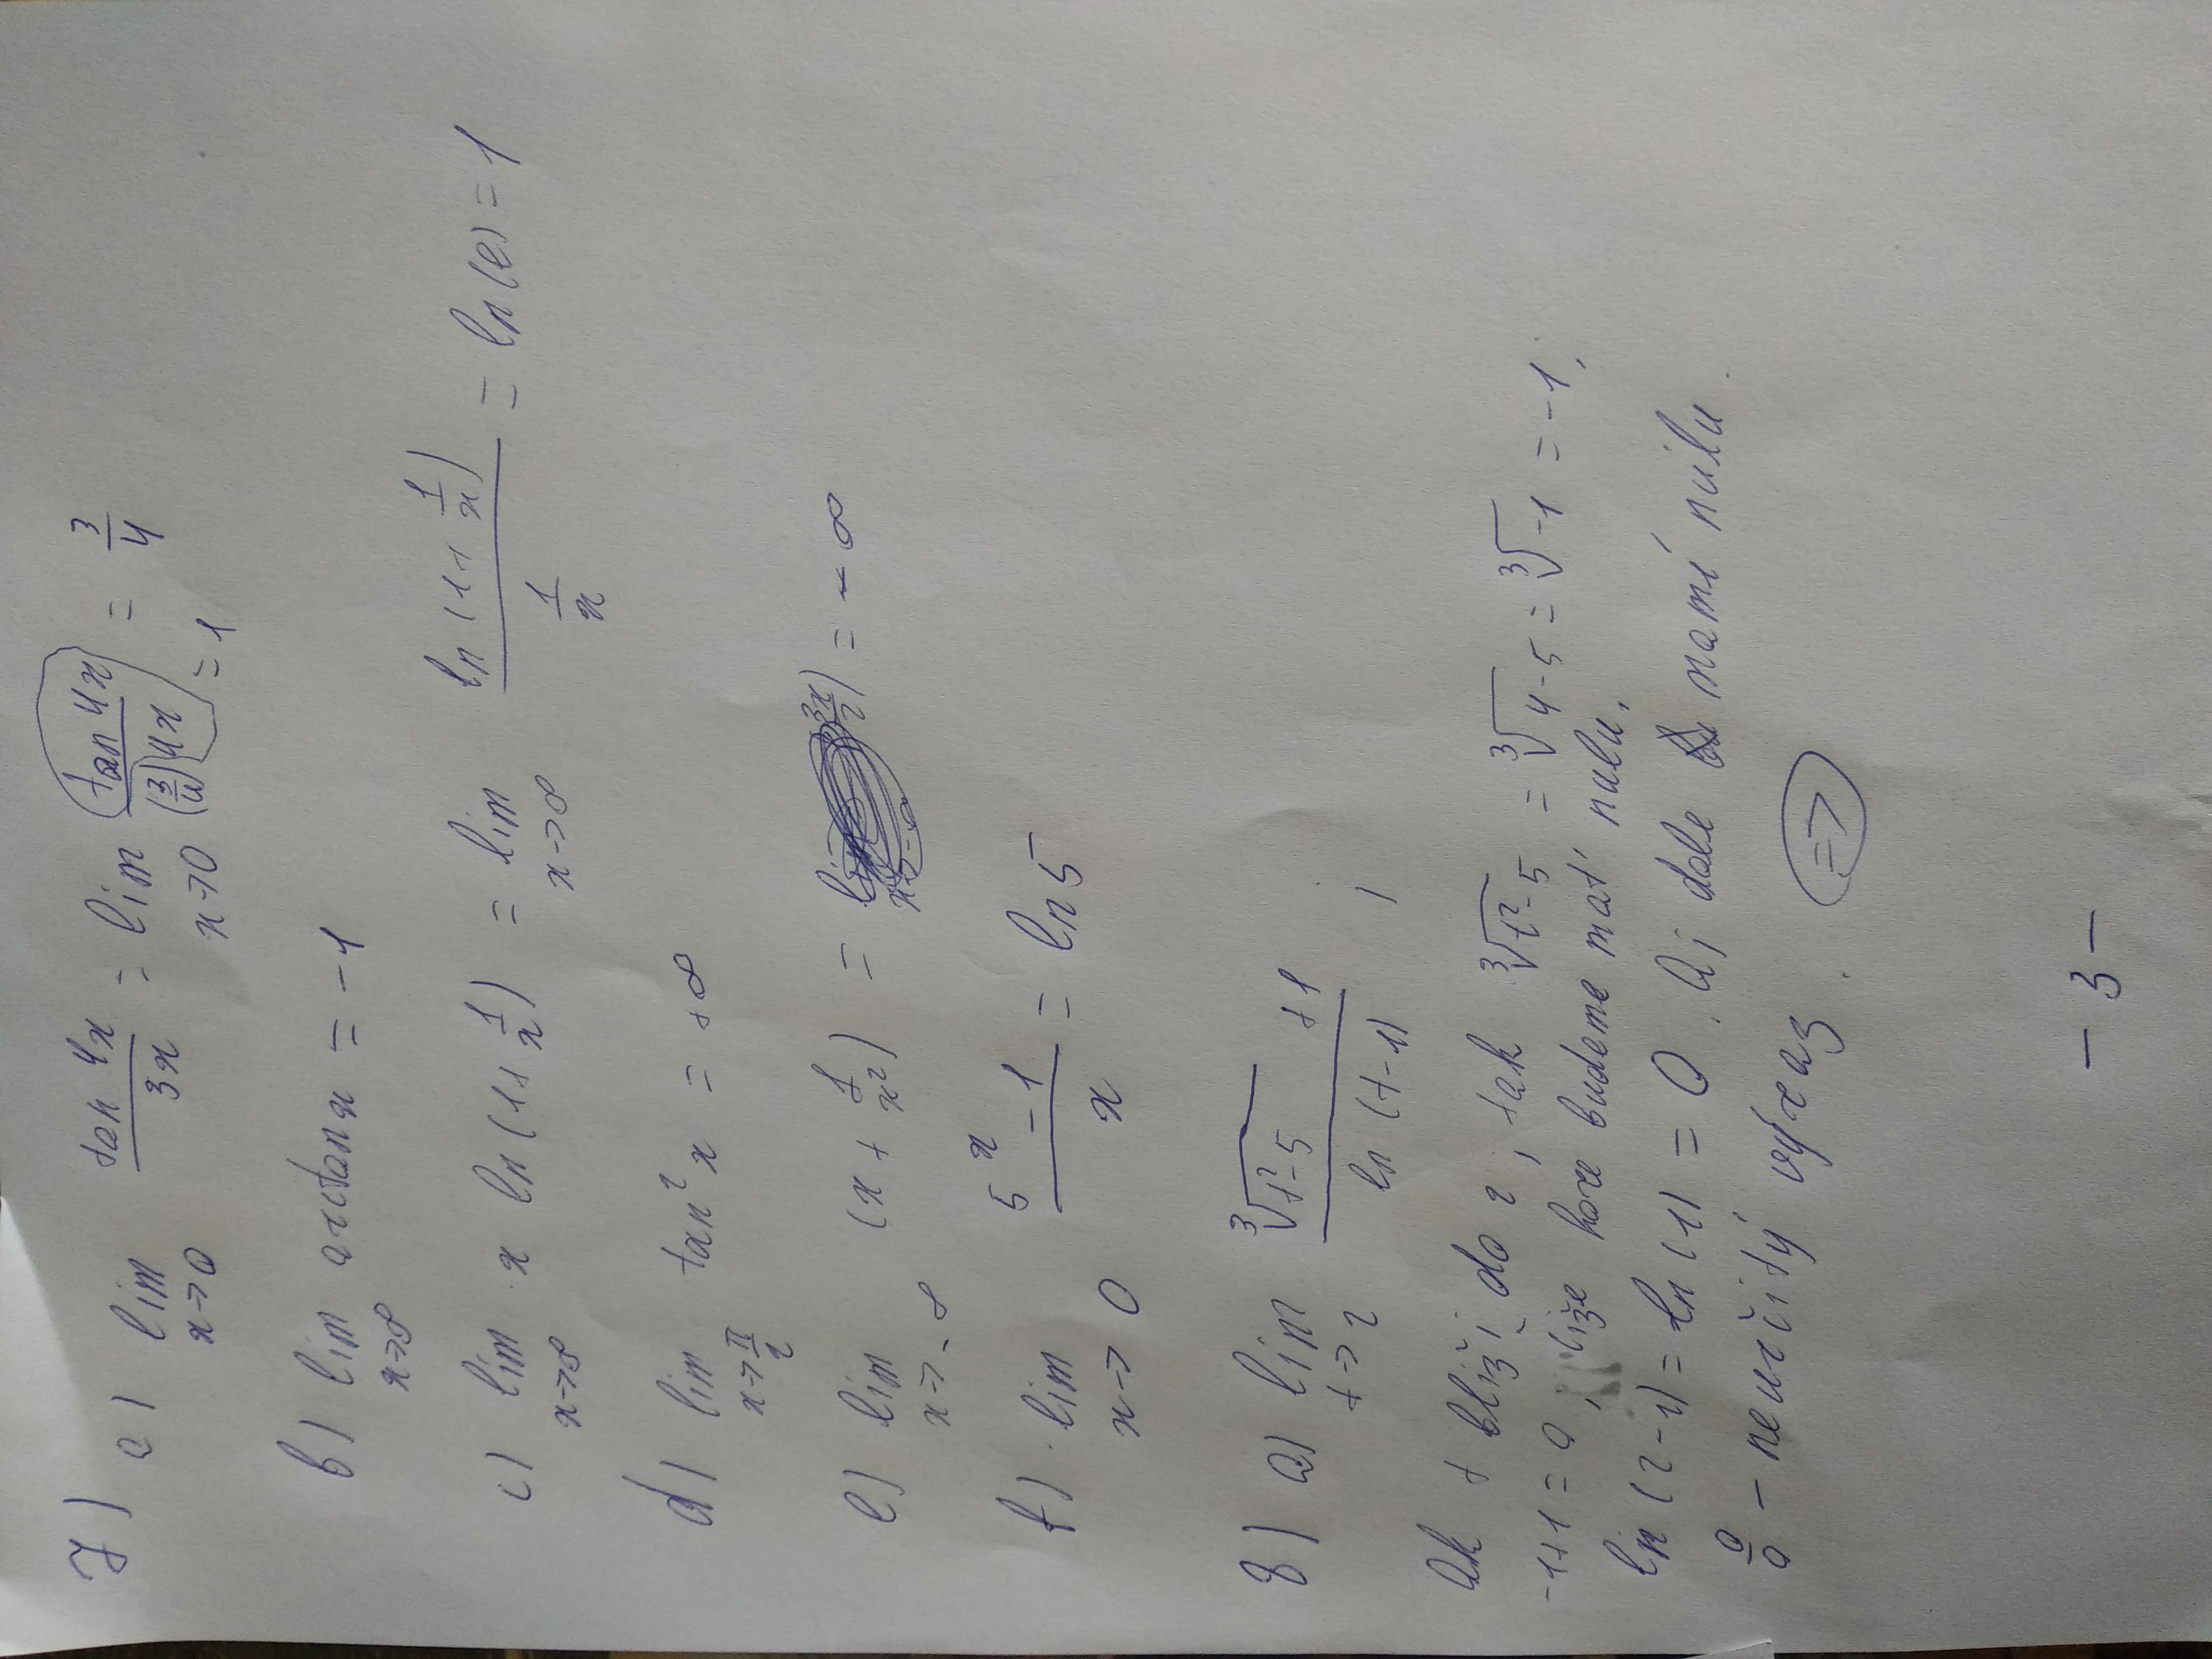 7) a) lim x→0 tan 4x / 3x = lim x→0 tan 4x / (3/4) 4x = 3/4
= 1
b) lim x→∞ arctan x = -1
c) lim x→∞ x ln (1+ 1/x) = lim x→∞ ln (1+ 1/x) / 1/x = ln(e) = 1
d) lim x→π/2 tan² x = +∞
e) lim x→-∞ (x + 1/x²) = = -∞
f) lim x→0 5^x - 1 / x = ln 5
8) a) lim t→2 ∛t²-5 +1 / ln (t-1) ,
Ak t blíži do 2, tak ∛t²-5 = ∛4-5 = ∛-1 = -1,
-1+1 = 0, hore budeme mať nulu,
ln (2-1) = ln (1) = 0. Aj dole mamé nulu.
0/0 - neurčitý výraz. ⇒
- 3 -